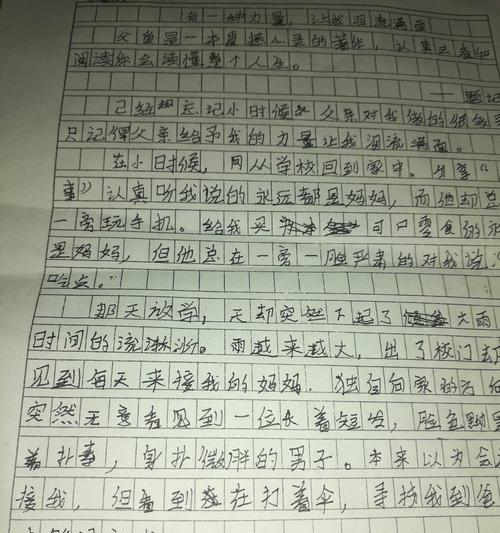 有一种力量，让我泪流满面
父爱是一本震撼心灵的著作，认真去
阅读你会读懂整个人生。
——题记
已经忘记小时候父亲对我做的
只记得父亲给予我的力量让我泪流满面。
在小时候，同从学校回到家中。分享“
事”）认真听我说的永远都是妈妈，而他却总
一旁玩手机。给我买可口零食的永
是妈妈，但他总在一旁一脸严肃的对我说
吃点。”
那天放学，天却突然下起了大雨
时间的流渐渐。雨越来越大，出了校门却
见到每天来接我的妈妈。独自向家的方向
突然无意看见到一位长着短发，脸色黝黑
着朴事，身扑微胖的男子。本来以为会
接我，但看到在打着伞，寻找我到爸